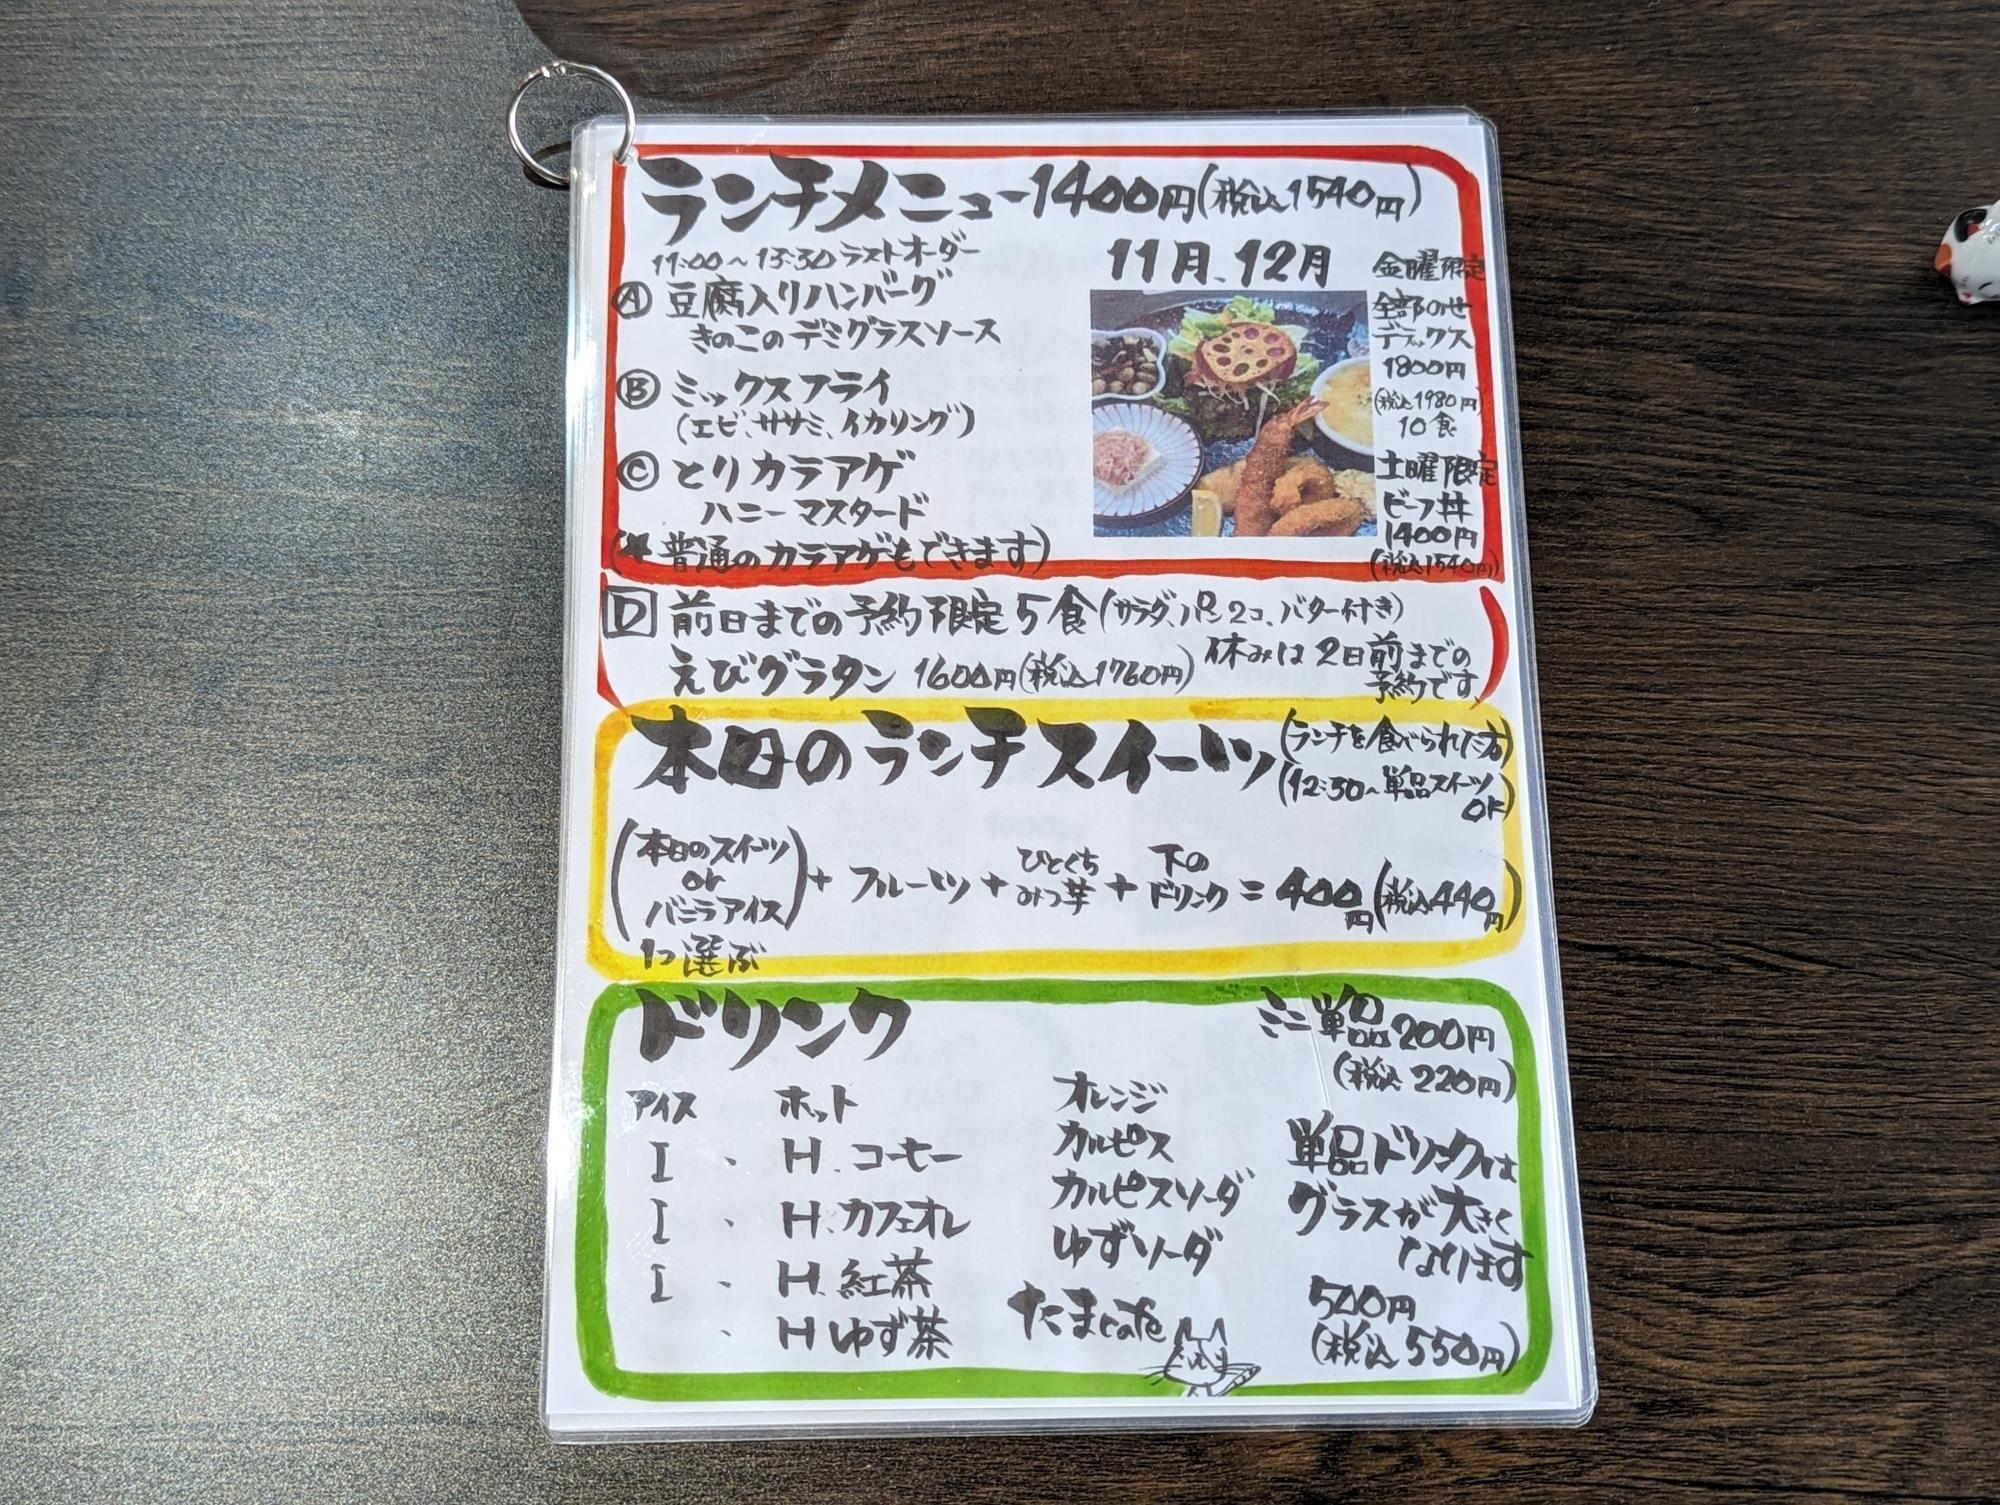 ランチメニュー1400円(税込1540円)
11:00～13:30ラストオーダー
11月、12月
Ⓐ 豆腐入りハンバーグ
きのこのデミグラスソース
Ⓑ ミックスフライ
(エビ、ササミ、イカリング)
Ⓒ とりカラアゲ
ハニーマスタード
(* 普通のカラアゲもできます)
金曜限定
全部のせ
デラックス
1800円
(税込1980円)
10食
土曜限定
ビーフ丼
1400円
(税込1540円)
D 前日までの予約限定5食(サラダ、パン2コ、バター付き)
えびグラタン 1600円(税込1760円)
休みは2日前までの
予約です
本日のランチスイーツ
(ランチを食べられた方)
(12:30～単品スイーツ
OK)
(本日のスイーツ
or
バニラアイス)
1つ選ぶ
+ フルーツ + ひとくち
みつ芋 + 下の
ドリンク = 400円(税込440円)
ドリンク
ミニ単品200円
(税込220円)
アイス ホット
I ・ H.コーヒー
I ・ H.カフェオレ
I ・ H.紅茶
・ Hゆず茶
オレンジ
カルピス
カルピスソーダ
ゆずソーダ
たまcafe
単品ドリンクは
グラスが大きく
なります
500円
(税込550円)